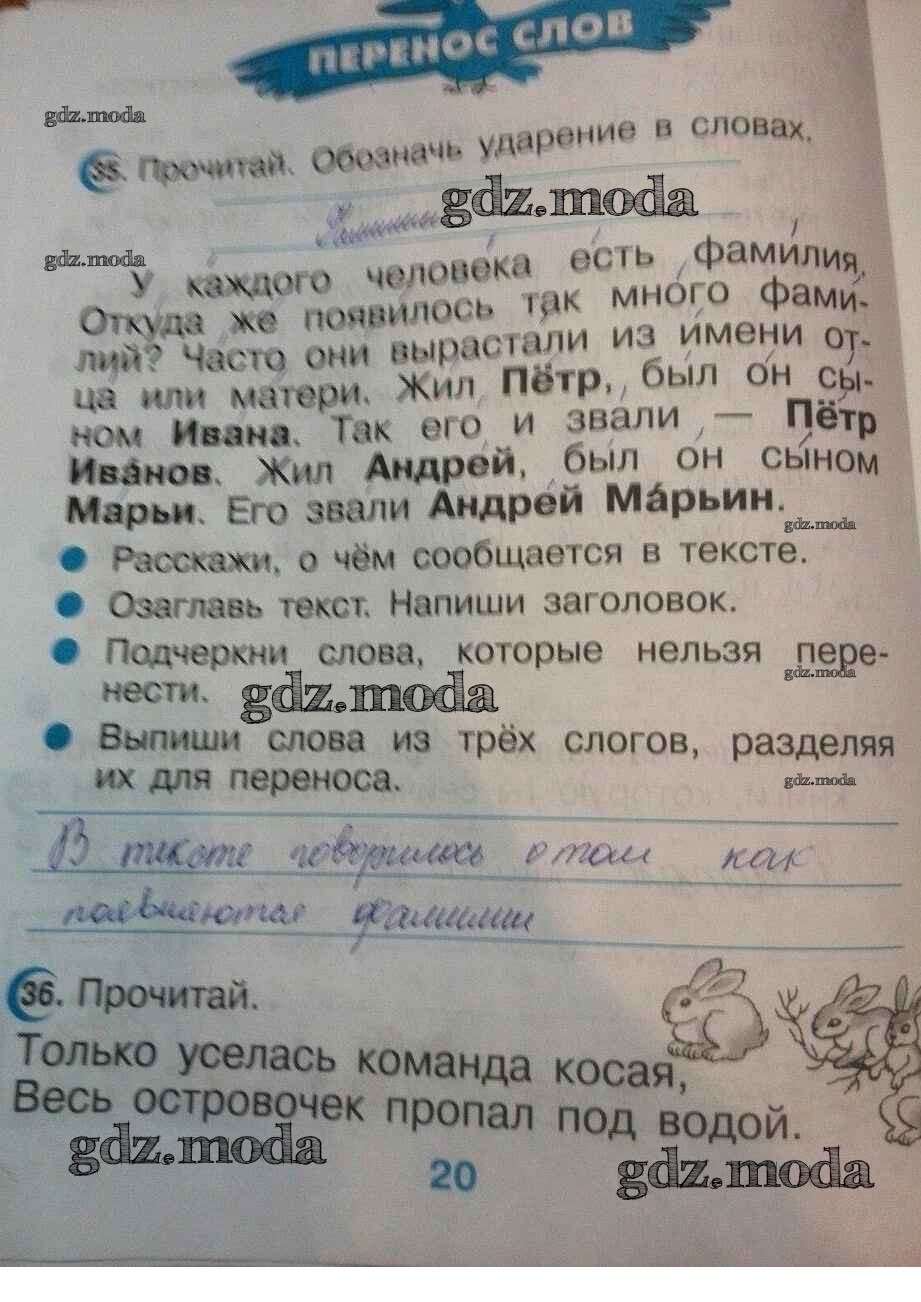 ПЕРЕНОС СЛОВ
gdz.moda
35. Прочитай. Обозначь ударение в словах.
gdz.moda
gdz.moda
У ка́ждого челове́ка е́сть фами́лия.
Отку́да же появи́лось так мно́го фами́-
лий? Ча́сто они́ выраста́ли из и́мени от-
ца́ или ма́тери. Жил Пётр, бы́л о́н сы́-
ном Ива́на. Так его́ и зва́ли — Пётр
Ива́нов. Жил Андре́й, бы́л о́н сы́ном
Марьи. Его звали Андре́й Ма́рьин.
gdz.moda
Расскажи, о чём сообщается в тексте.
Озаглавь текст. Напиши заголовок.
Подчеркни слова, которые нельзя пере-
gdz.moda
нести.
gdz.moda
Выпиши слова из трёх слогов, разделяя
их для переноса.
gdz.moda
В тексте говорилось о том как
появляются фамилии
36. Прочитай.
Только уселась команда косая,
Весь островочек пропал под водой.
gdz.moda
20
gdz.moda